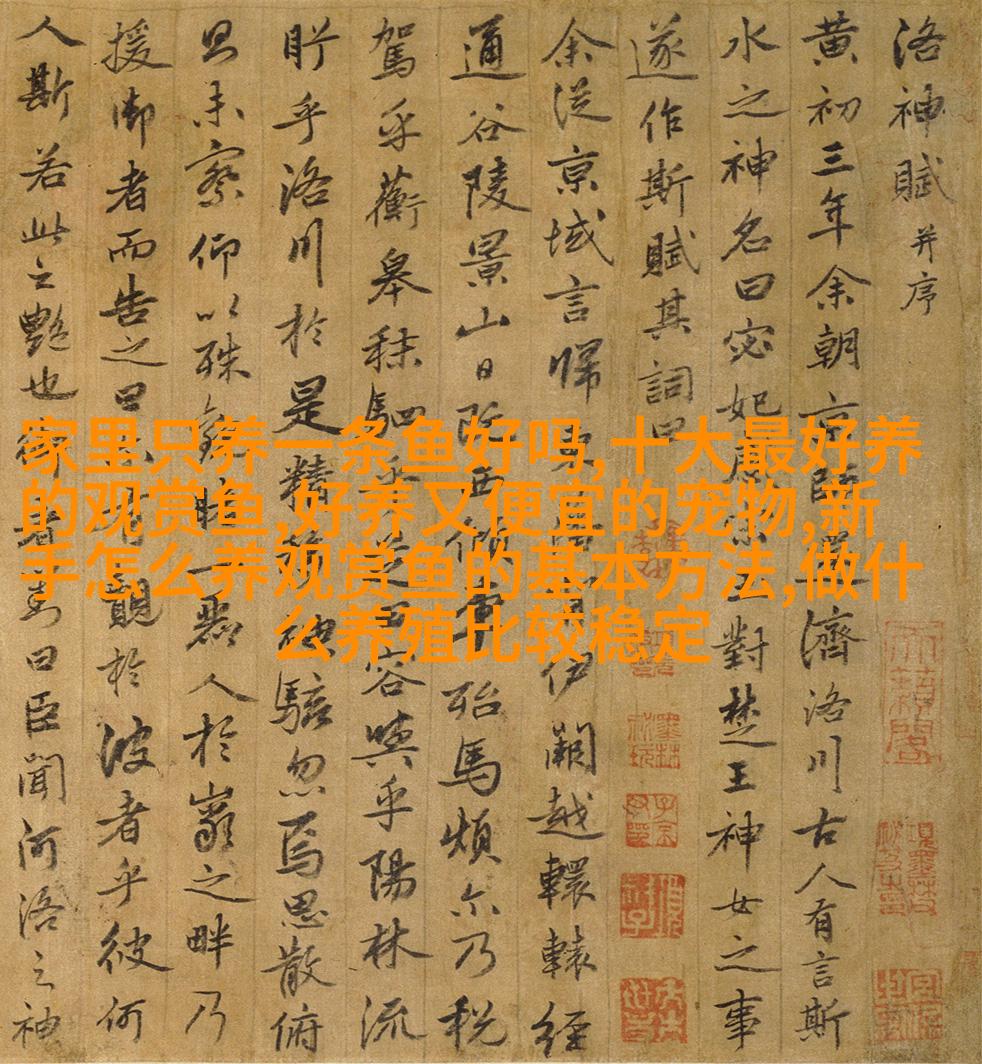 洛神賦并序
黄初三年余朝京師濟洛川古人有言斯
水之神名曰宓妃感宋玉對楚王神女之事
遂作斯賦其詞曰
余從京域言歸東藩伊闕越轘轅經
通谷陵景山日既西傾車殆馬煩尓乃税
駕乎蘅皋秣駟乎芝田容與乎陽林流
眄乎洛川於是精移神駭忽焉思散俯
則未察仰以殊觀睹一麗人於巖之畔乃
援御者而告之曰覿於彼者乎彼何
人斯若此之艷也御者對曰臣聞河洛之神
家里只养一条鱼好吗,十大最好养
的观赏鱼,好养又便宜的宠物,新
手怎么养观赏鱼的基本方法,做什
么养殖比较稳定